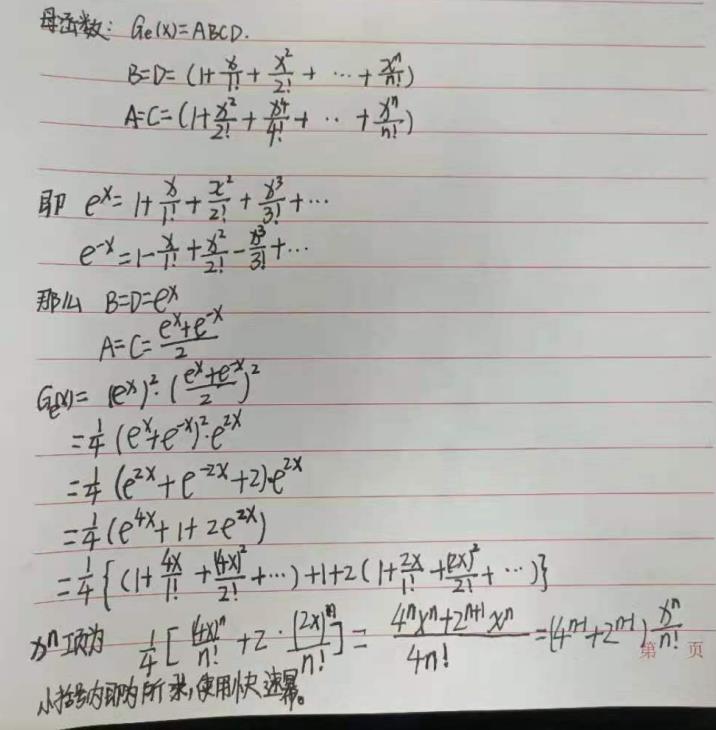 母函数: Ge(x)=ABCD.
B=D=(1+x/1!+x²/2!+…+xⁿ/n!)
A=C=(1+x²/2!+x⁴/4!+…+xⁿ/n!)
即 eˣ=1+x/1!+x²/2!+x³/3!+…
e⁻ˣ=1-x/1!+x²/2!-x³/3!+…
那么 B=D=eˣ
A=C=(eˣ+e⁻ˣ)/2
Ge(x)=(eˣ)²·((eˣ+e⁻ˣ)/2)²
=1/4(eˣ+e⁻ˣ)²·e²ˣ
=1/4(e²ˣ+e⁻²ˣ+2)·e²ˣ
=1/4(e⁴ˣ+1+2e²ˣ)
=1/4{(1+4x/1!+(4x)²/2!+…)+1+2(1+2x/1!+(2x)²/2!+…)}
xⁿ项为 1/4[(4x)ⁿ/n!+2·(2x)ⁿ/n!]=(4ⁿxⁿ+2ⁿ⁺¹xⁿ)/4n!=(4ⁿ⁻¹+2ⁿ⁻¹)xⁿ/n!
第 页
小括号内即为所求,使用快速幂。